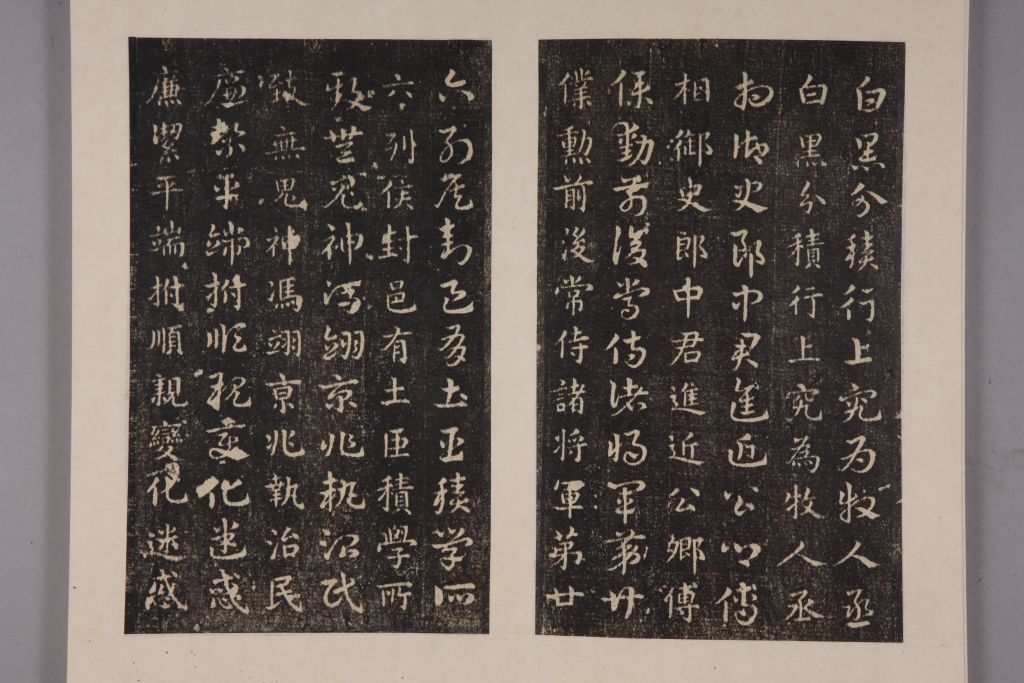 白黑分積行上究為牧人丞
白黑分積行上究為牧人丞
相御史郎中君進近公卿傅
相御史郎中君進近公卿傅
僕勳前後常侍諸將軍第廿
僕勳前後常侍諸將軍第廿
六列侯封邑有土臣積學所
六列侯封邑有土臣積學所
致無鬼神馮翊京兆執治民
致無鬼神馮翊京兆執治民
廉潔平端拊順親變化迷惑
廉潔平端拊順親變化迷惑